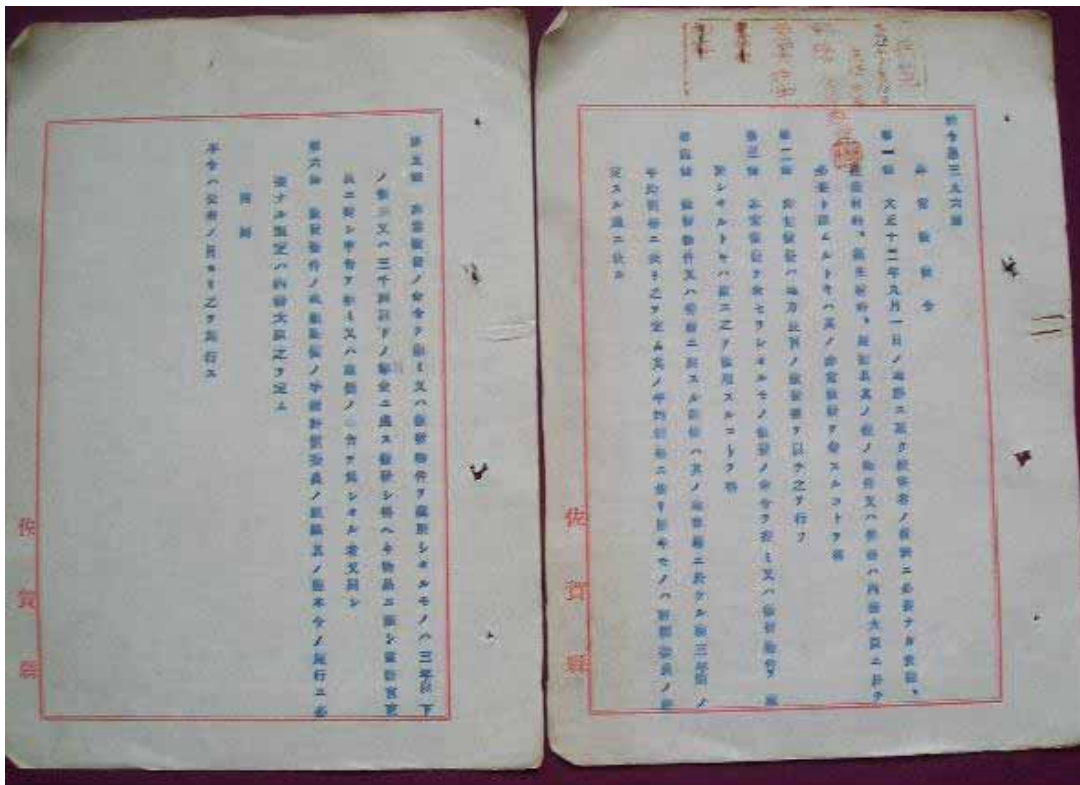 勅令第三九六號
非常徴發令
第一條　大正十二年九月一日ノ地震ニ基ク被害者ノ救濟ニ必要ナル食糧、
建築材料、衛生材料、運搬具其ノ他ノ物件又ハ勞務ハ内務大臣ニ於テ
必要ト認ムルトキハ其ノ非常徴發ヲ命スルコトヲ得
第二條　非常徴發ハ地方長官ノ徴發書ヲ以テ之ヲ行フ
第三條　非常徴發ヲ命セラレタルモノ徴發ノ命令ヲ拒ミ又ハ徴發物件ヲ藏
匿シタルトキハ直ニ之ヲ徴用スルコトヲ得
第四條　徴發物件又ハ勞務ニ對スル賠償ハ其ノ市場ニ於ケル前三年間ノ
平均價格ニ依リ之ヲ定ム其ノ平均價格ニ依リ難キモノハ評價委員ノ評
定スル所ニ依ル
佐賀縣
第五條　非常徴發ノ命令ヲ拒ミ又ハ徴發物件ヲ藏匿シタルモノハ三年以下
ノ懲役又ハ三千圓以下ノ罰金ニ處ス徴發シ得ヘキ物品ニ關シ當該官吏
員ニ對シ申告ヲ拒ミ又ハ虚僞ノ申告ヲ爲シタル者亦同シ
第六條　徴發物件ノ種類賠償ノ手續評價委員ノ組織其ノ他本令ノ施行ニ必
要ナル規定ハ内務大臣之ヲ定ム
附則
本令ハ公布ノ日ヨリ之ヲ施行ス
佐賀縣